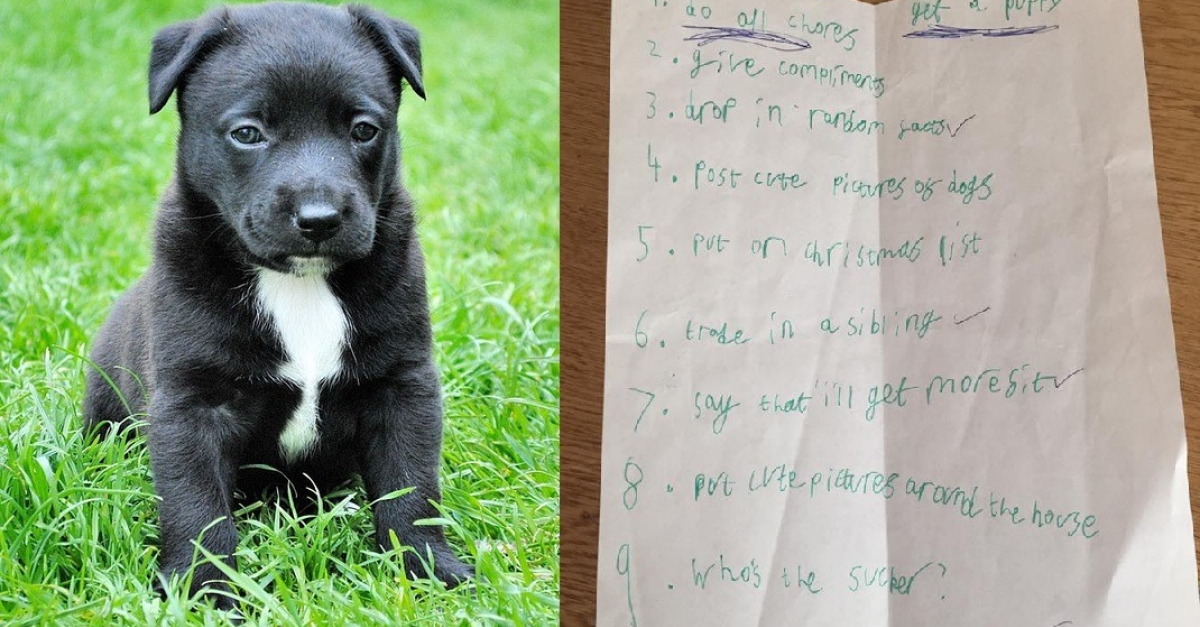 1. do all chores get a puppy
2. give compliments
3. drop in random facts ✓
4. post cute pictures of dogs
5. put on christmas list
6. trade in a sibling ✓
7. say that i'll get more fit ✓
8. put cute pictures around the house
9. Who's the sucker?